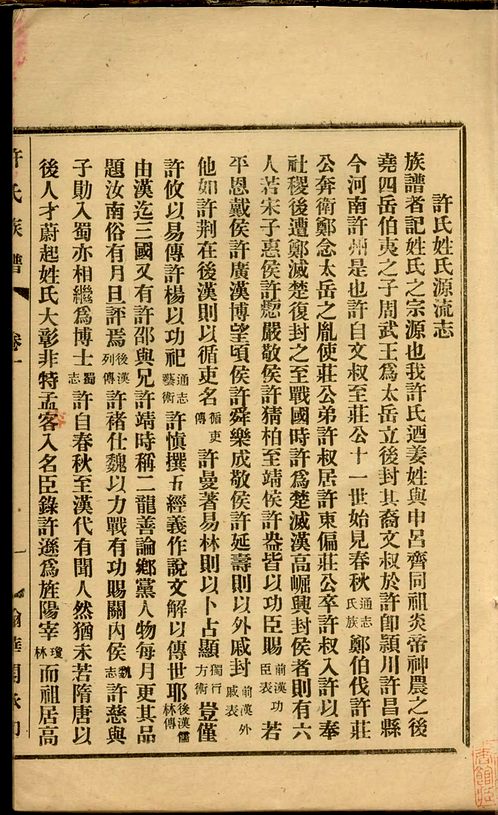 許氏姓氏源流志
族譜者記姓氏之宗源也我許氏迺姜姓與申呂齊同祖炎帝神農之後
堯四岳伯夷之子周武王爲太岳立後封其裔文叔於許卽潁川許昌縣
今河南許州是也許自文叔至莊公十一世始見春秋通志氏族鄭伯伐許莊
公奔衛鄭念太岳之胤使莊公弟許叔居許東偏莊公卒許叔入許以奉
社稷後遭鄭滅楚復封之至戰國時許爲楚滅漢高崛興封侯者則有六
人若宋子惠侯許瘛嚴敬侯許猜柏至靖侯許盎皆以功臣賜前漢功臣表若
平恩戴侯許廣漢博望頃侯許舜樂成敬侯許延壽則以外戚封前漢外戚表
他如許荆在後漢則以循吏名循吏傳許曼著易林則以卜占顯獨行方術豈僅
許攸以易傳許楊以功祀通志藝術許慎撰五經義作說文解以傳世耶後漢儒林傳
由漢迄三國又有許邵與兄許靖時稱二龍善論鄉黨人物每月更其品
題汝南俗有月旦評焉後漢列傳許褚仕魏以力戰有功賜關內侯魏志許慈與
子勛入蜀亦相繼爲博士蜀志許自春秋至漢代有聞人然猶未若隋唐以
後人才蔚起姓氏大彰非特孟客入名臣錄許遜爲旌陽宰瓊林而祖居高
許氏族譜
卷一